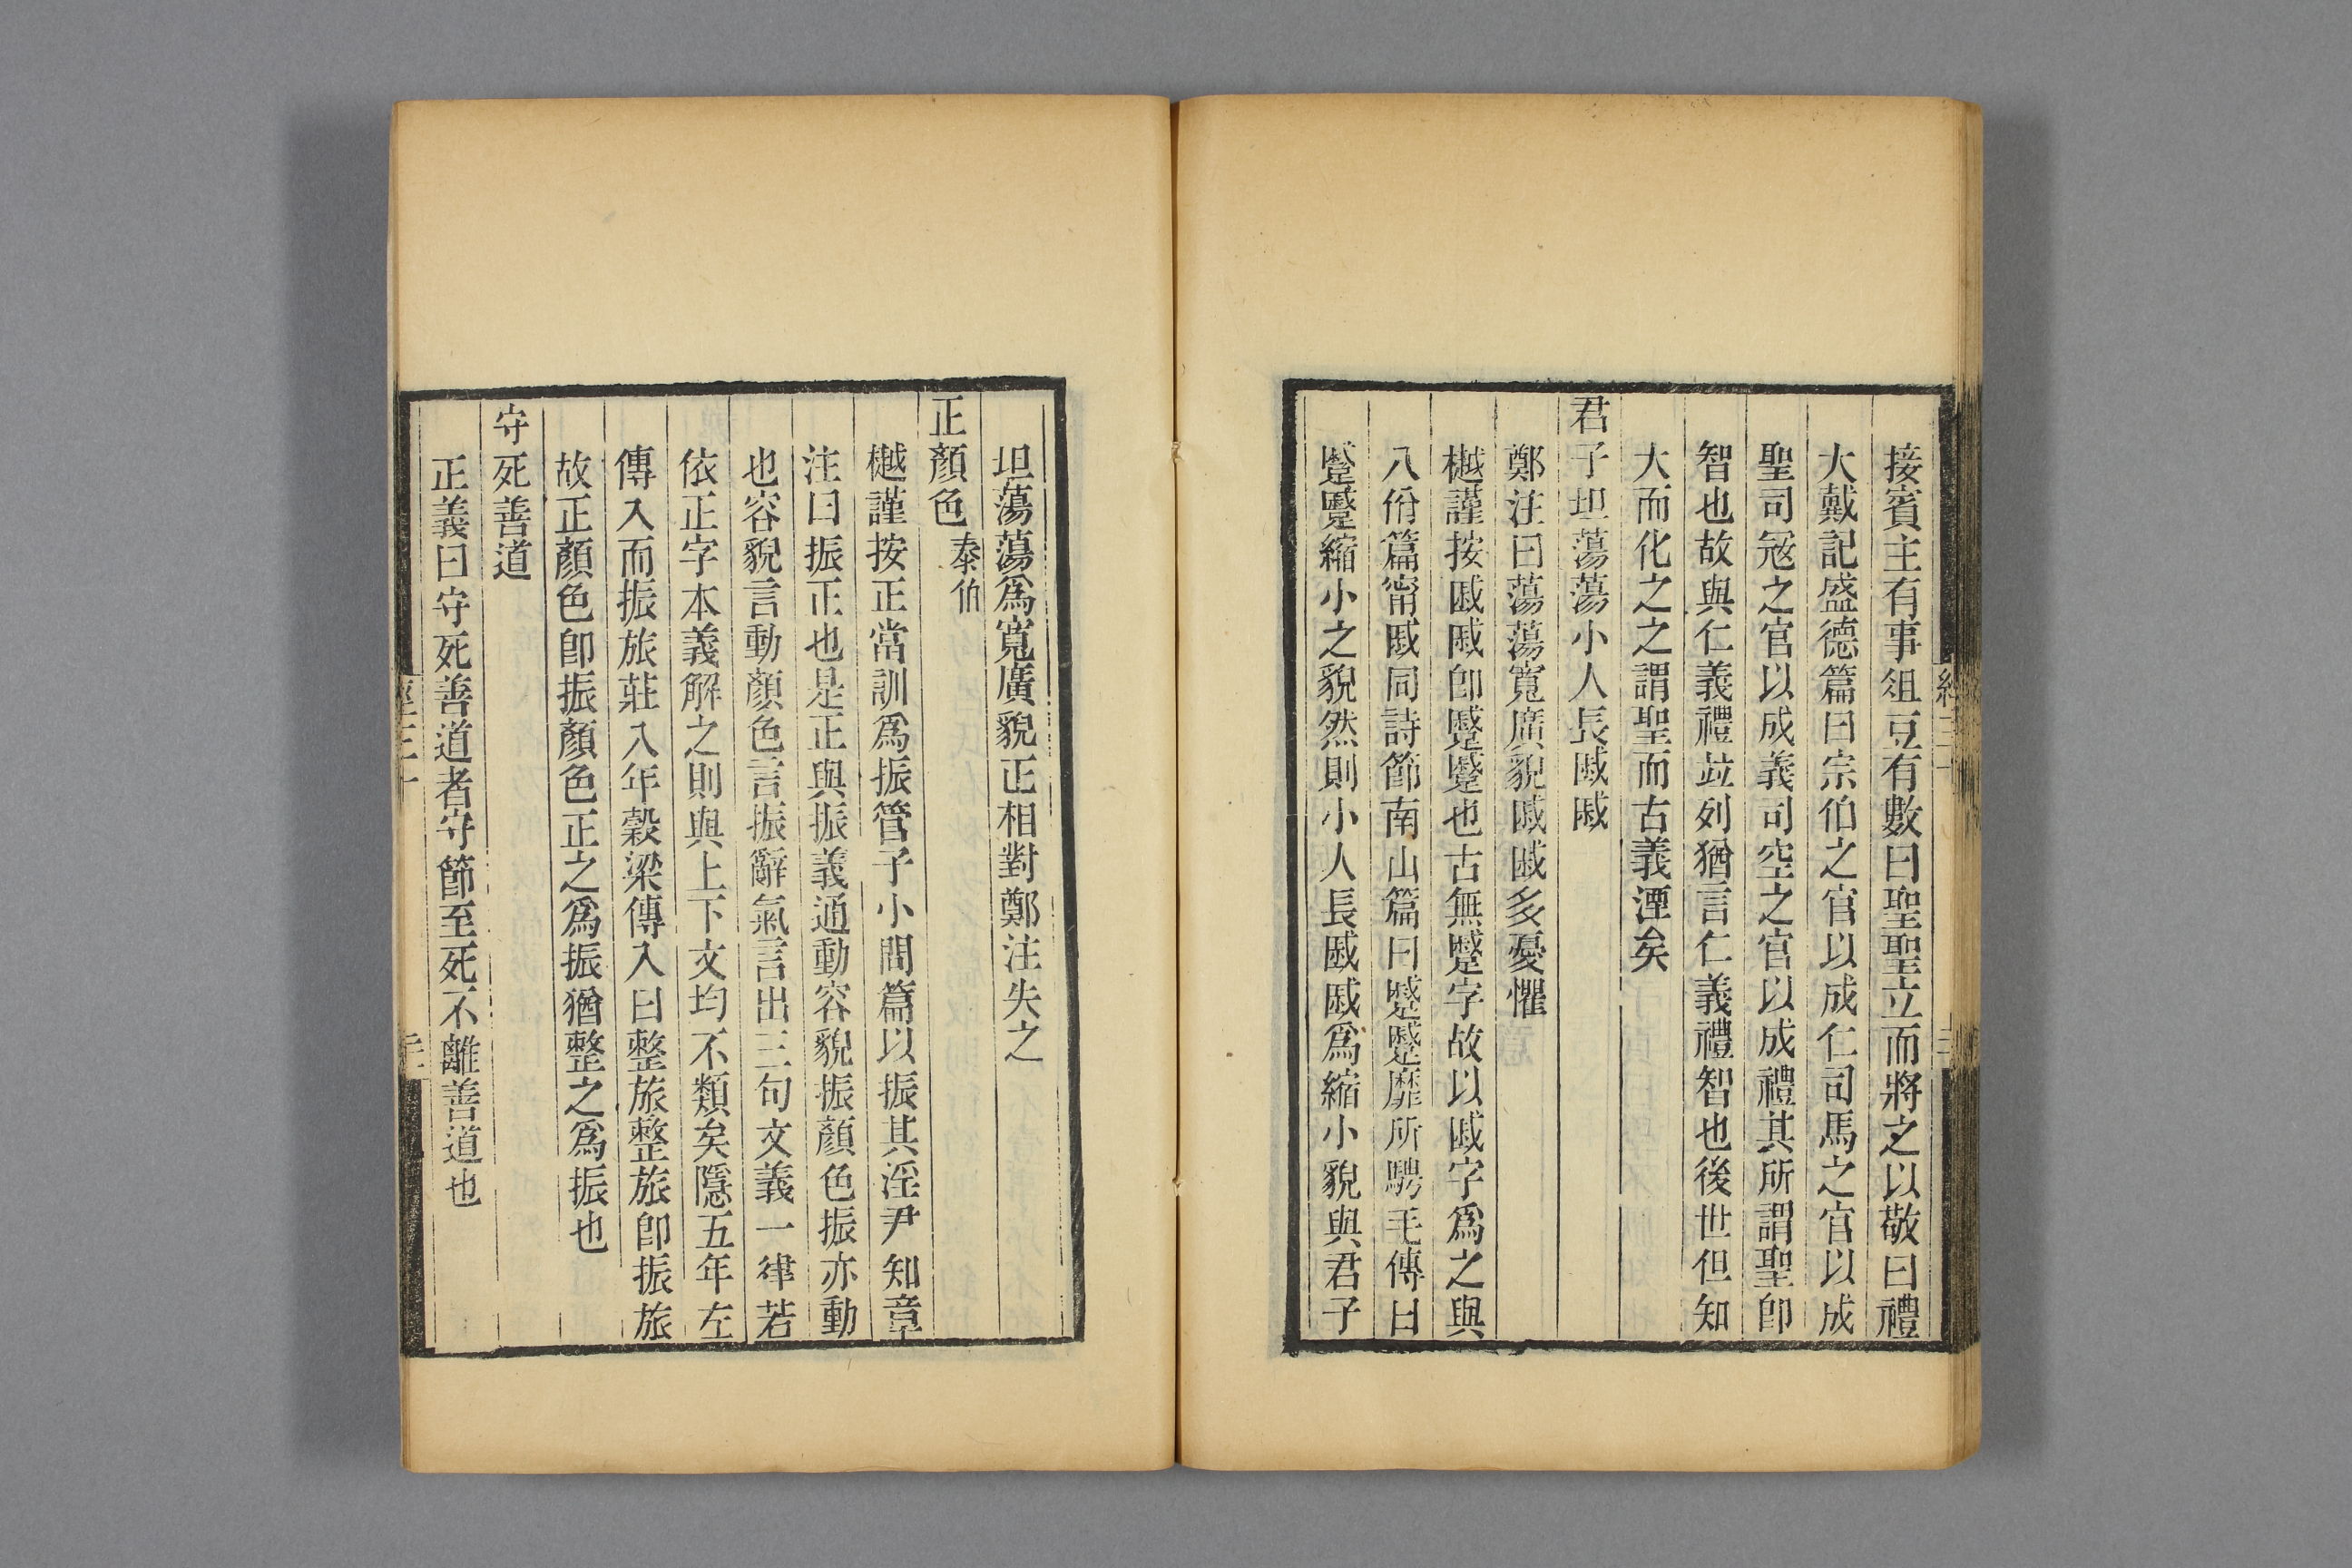 接賓主有事俎豆有數曰聖聖立而將之以敬曰禮
大戴記盛德篇曰宗伯之官以成仁司馬之官以成
聖司冦之官以成義司空之官以成禮其所謂聖卽
智也故與仁義禮竝列猶言仁義禮智也後世但知
大而化之之謂聖而古義湮矣
君子坦蕩蕩小人長戚戚
鄭注曰蕩蕩寬廣貌戚戚多憂懼
樾謹按戚戚卽蹙蹙也古無蹙字故以戚字爲之與
八佾篇甯戚同詩節南山篇曰蹙蹙靡所騁毛傳曰
蹙蹙縮小之貌然則小人長戚戚爲縮小貌與君子
坦蕩蕩爲寬廣貌正相對鄭注失之
正顏色 泰伯
樾謹按正當訓爲振管子小問篇以振其淫尹知章
注曰振正也是正與振義通動容貌振顏色振亦動
也容貌言動顏色言振辭氣言出三句文義一律若
依正字本義解之則與上下文均不類矣隱五年左
傳入而振旅莊八年穀梁傳入曰整旅整旅卽振旅
故正顏色卽振顏色正之爲振猶整之爲振也
守死善道
正義曰守死善道者守節至死不離善道也